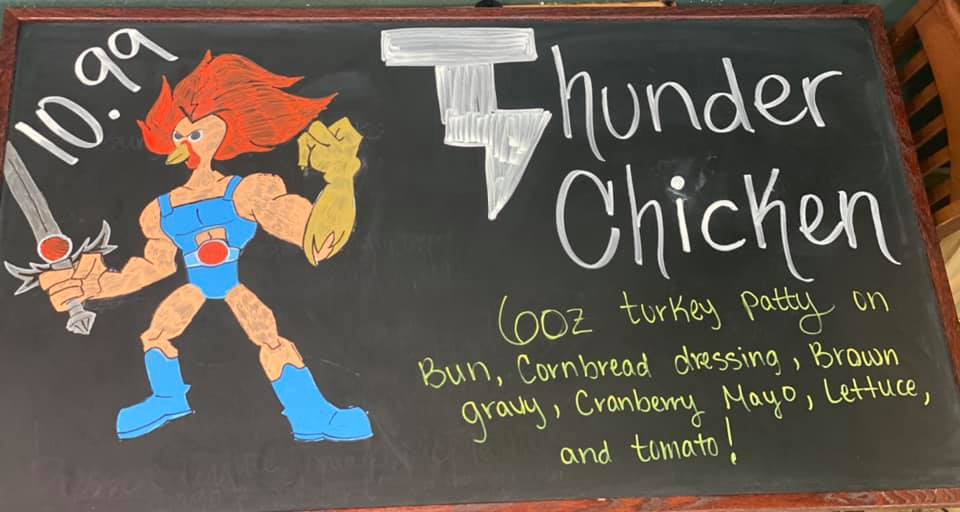 10.99
Thunder
Chicken
6oz turkey patty on
Bun, Cornbread dressing, Brown
gravy, Cranberry Mayo, Lettuce,
and tomato!